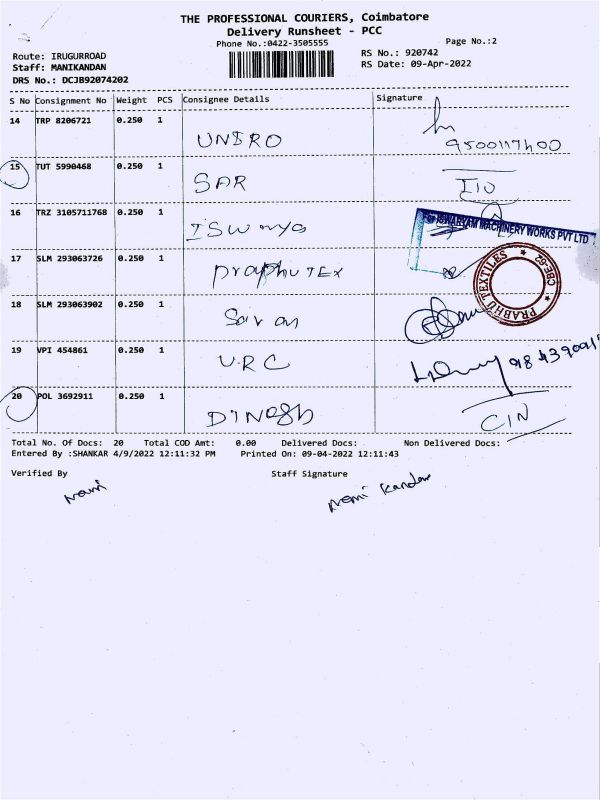 THE PROFESSIONAL COURIERS, Coimbatore
Delivery Runsheet - PCC
Phone No.:0422-3505555
Page No.:2
Route: IRUGURROAD
RS No.: 920742
Staff: MANIKANDAN
RS Date: 09-Apr-2022
DRS No.: DCJB92074202
S No Consignment No Weight PCS Consignee Details Signature
14 TRP 8206721 0.250 1
UNIRO
15 TUT 5990468 0.250 1
SAR
16 TRZ 3105711768 0.250 1
ISWarya
For ISWARYAM MACHINERY WORKS PVT LTD
17 SLM 293063726 0.250 1
PraphuTEX
PRABHU TEXTILES CBE-62
18 SLM 293063902 0.250 1
Saravan
19 VPI 454861 0.250 1
URC
20 POL 3692911 0.250 1
DINesh
CIN
Total No. Of Docs: 20 Total COD Amt: 0.00 Delivered Docs: Non Delivered Docs:
Entered By :SHANKAR 4/9/2022 12:11:32 PM Printed On: 09-04-2022 12:11:43
Verified By Staff Signature
mani
mani kandan